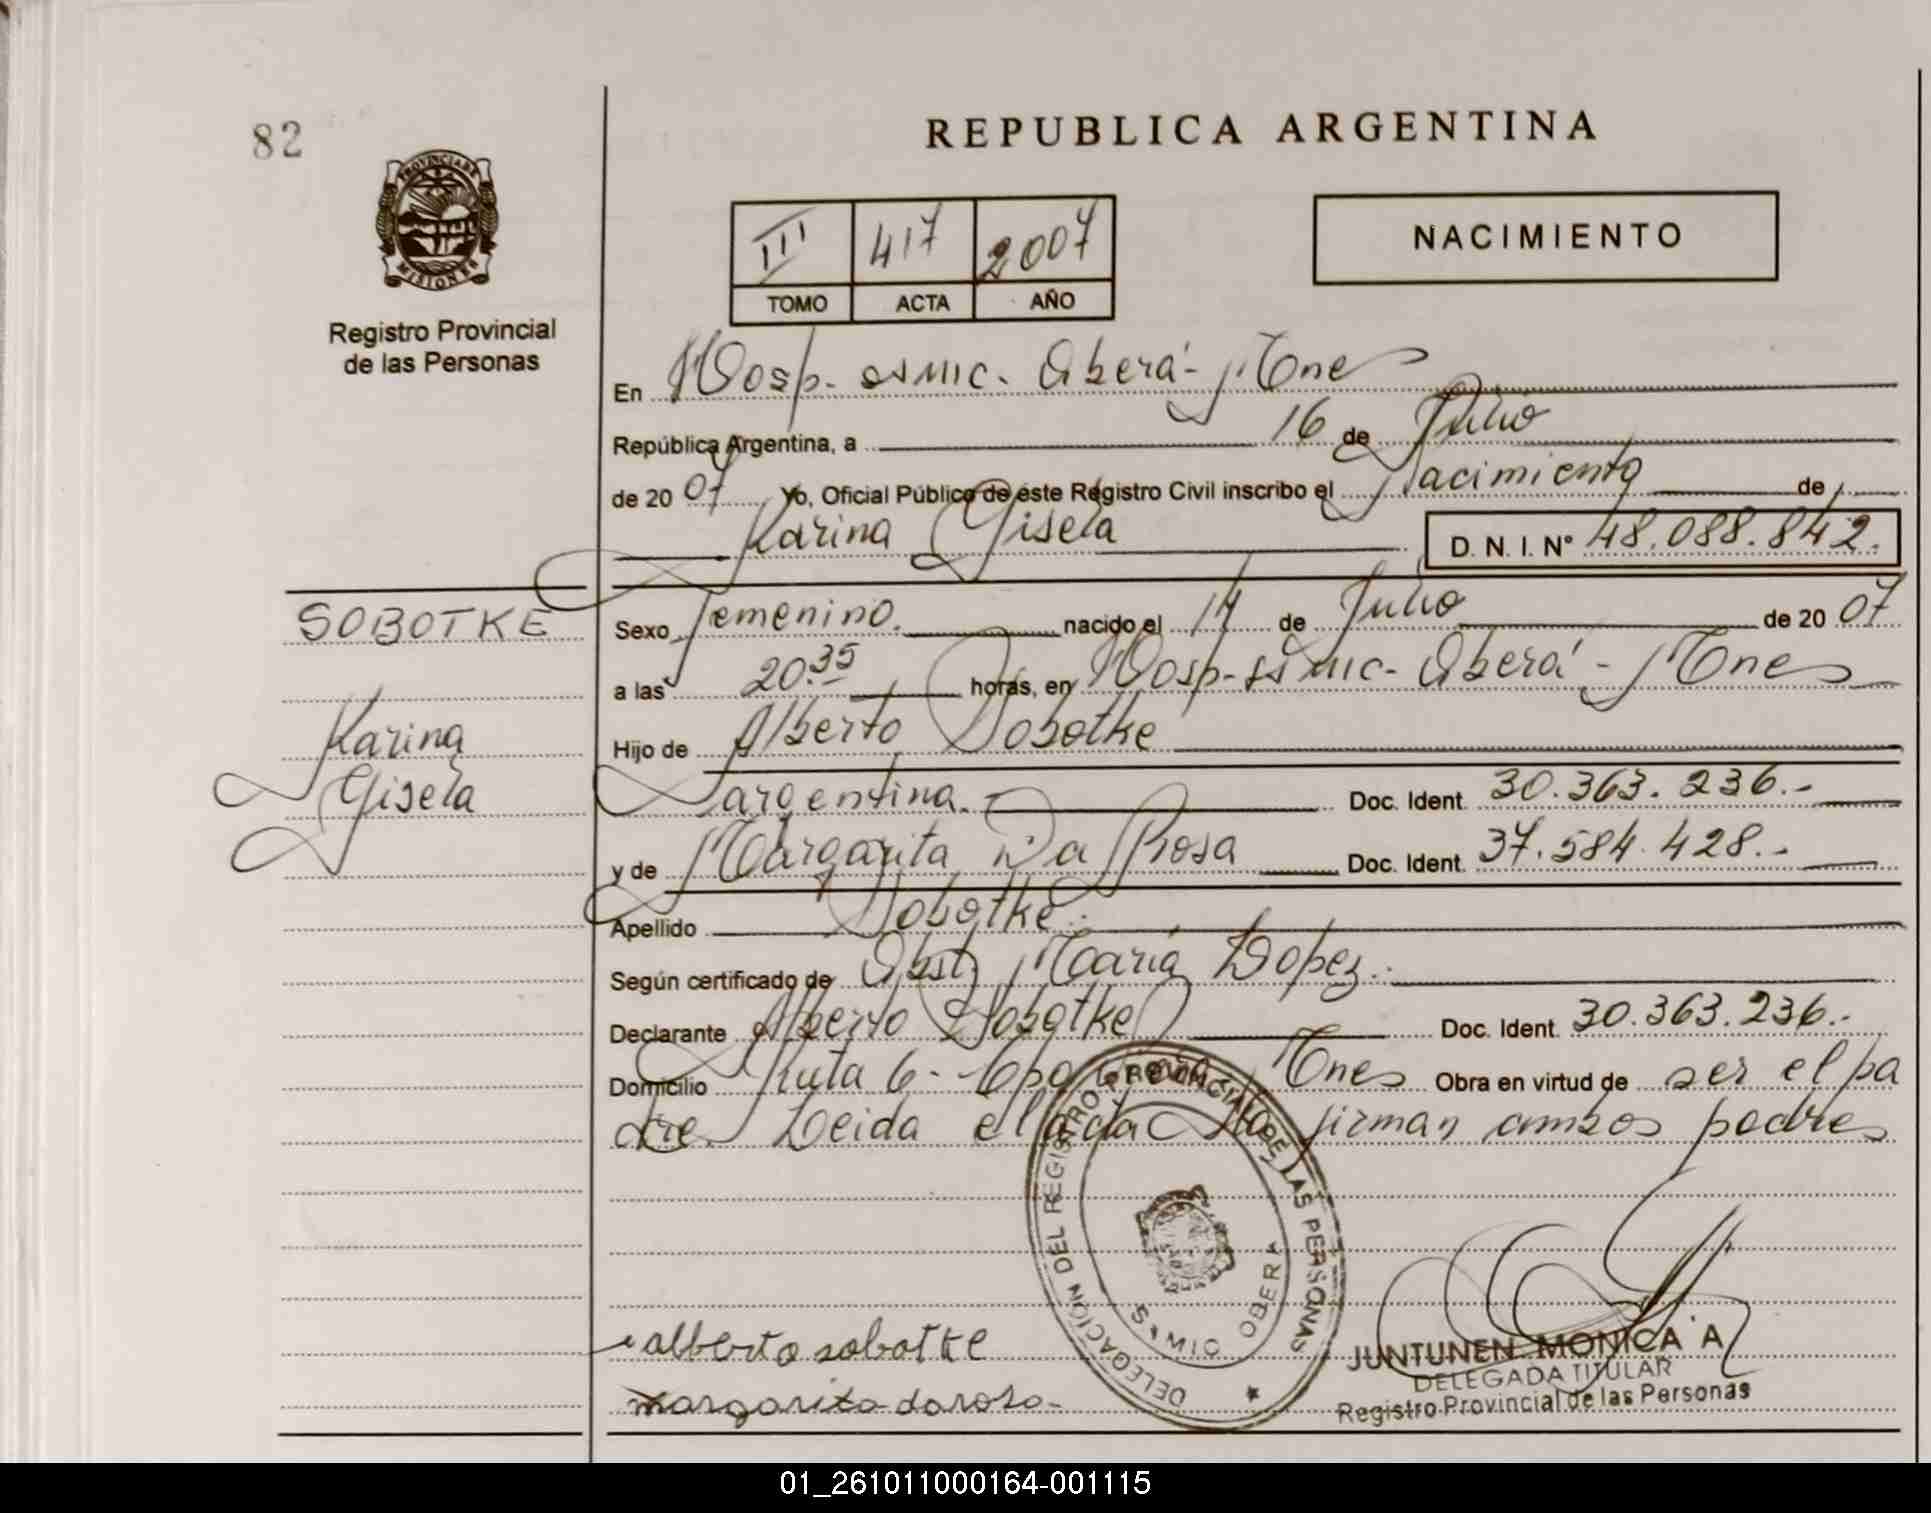 82
REPUBLICA ARGENTINA
PROVINCIA DE
MISIONES
Registro Provincial
de las Personas
III 417 2007
TOMO ACTA AÑO
NACIMIENTO
En Hosp. SAMIC. Oberá - Mnes
República Argentina, a 16 de Julio
de 20 07 Yo, Oficial Público de este Registro Civil inscribo el Nacimiento de
Karina Gisela
D. N. I. Nº 48.088.842.
SOBOTKE
Karina
Gisela
Sexo Femenino. nacido el 14 de Julio de 20 07
a las 20.35 horas, en Hosp. SAMIC - Oberá - Mnes
Hijo de Alberto Sobotke
Argentina. Doc. Ident. 30.363.236.-
y de Margarita Da Rosa Doc. Ident. 37.584.428.-
Apellido Sobotke.
Según certificado de Obst. María Lopez.
Declarante Alberto Sobotke Doc. Ident. 30.363.236.-
Domicilio Ruta 6 - Mnes Obra en virtud de ser el pa
dre. Leida el acta la firman ambos padres
DELEGACION DEL REGISTRO PROVINCIAL DE LAS PERSONAS
SAMIC OBERA
alberto sobotke
margarita darosa
JUNTUNEN MONICA A
DELEGADA TITULAR
Registro Provincial de las Personas
01_261011000164-001115